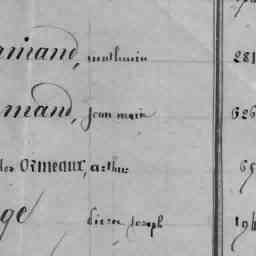 mand, mathurin 281
mand, jean marie 626
des Ormeaux, arthur 65
ge pierre joseph 194